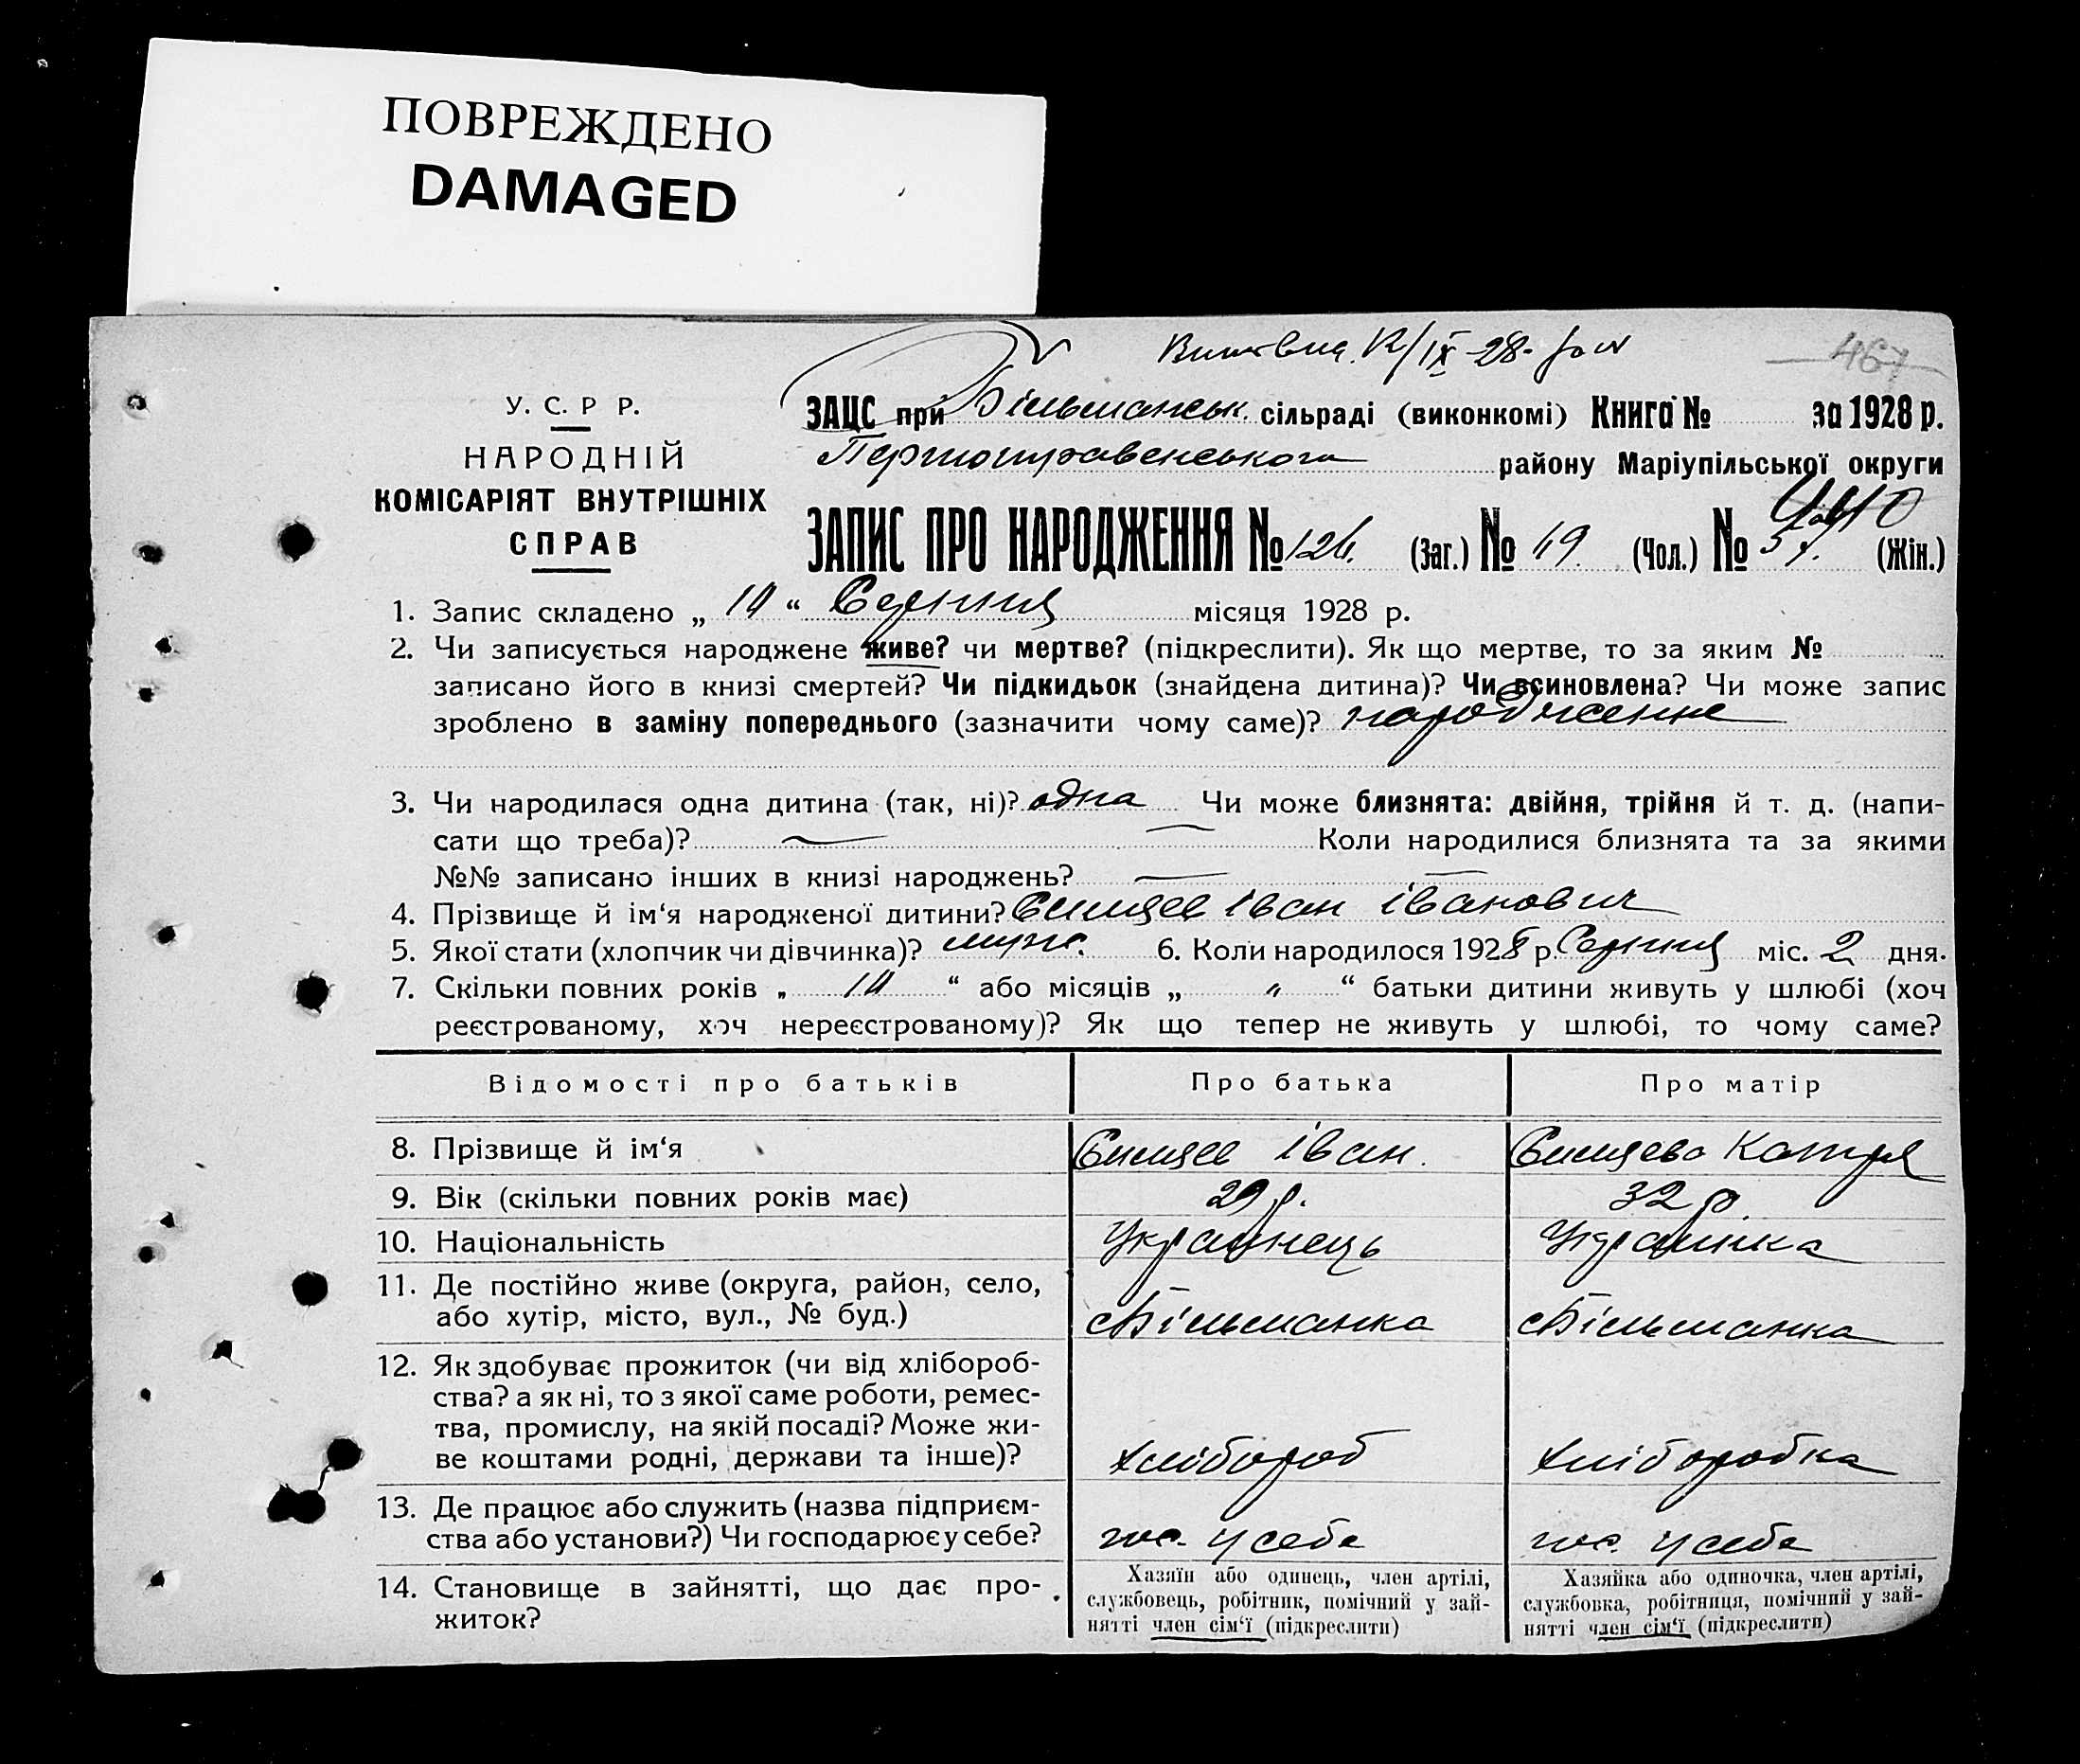 ПОВРЕЖДЕНО
DAMAGED
467
У. С. Р Р.
НАРОДНІЙ
КОМІСАРІЯТ ВНУТРІШНІХ
СПРАВ
ЗАЦС при Більманськ. сільраді (виконкомі) Книга № за 1928 р.
району Маріупільської округи
ЗАПИС ПРО НАРОДЖЕННЯ № 126. (Заг.) № 69. (Чол.) № 57. (Жін.)
1. Запис складено „ 10 “ Серпня місяця 1928 р.
2. Чи записується народжене живе? чи мертве? (підкреслити). Як що мертве, то за яким №
записано його в книзі смертей? Чи підкидьок (знайдена дитина)? Чи всиновлена? Чи може запис
зроблено в заміну попереднього (зазначити чому саме)? народження
3. Чи народилася одна дитина (так, ні)? одна Чи може близнята: двійня, трійня й т. д. (напи-
сати що треба)? — — Коли народилися близнята та за якими
№№ записано інших в книзі народжень? — —
4. Прізвище й ім‘я народженої дитини? Іван Іванович
5. Якої стати (хлопчик чи дівчинка)? муж. 6. Коли народилося 1928 р. Серпня міс. 2 дня.
7. Скільки повних років „ 10 “ або місяців „ „ “ батьки дитини живуть у шлюбі (хоч
реєстрованому, хоч нереєстрованому)? Як що тепер не живуть у шлюбі, то чому саме?
Відомості про батьків Про батька Про матір
8. Прізвище й ім‘я Іван. Катря
9. Вік (скільки повних років має) 29 р. 32 р.
10. Національність Українець Українка
11. Де постійно живе (округа, район, село,
або хутір, місто, вул., № буд.) с Більманка с Більманка
12. Як здобуває прожиток (чи від хлібороб-
ства? а як ні, то з якої саме роботи, ремес-
тва, промислу, на якій посаді? Може жи-
ве коштами родні, держави та інше)? Хлібороб Хліборобка
13. Де працює або служить (назва підприєм-
ства або установи?) Чи господарює у себе? гос. у себе гос. у себе
14. Становище в зайнятті, що дає про-
житок?
Хазяїн або одинець, член артілі,
службовець, робітник, помічний у зай-
нятті член сім‘ї (підкреслити)
Хазяйка або одиночка, член артілі,
службовка, робітниця, помічний у зай-
нятті член сім‘ї (підкреслити)